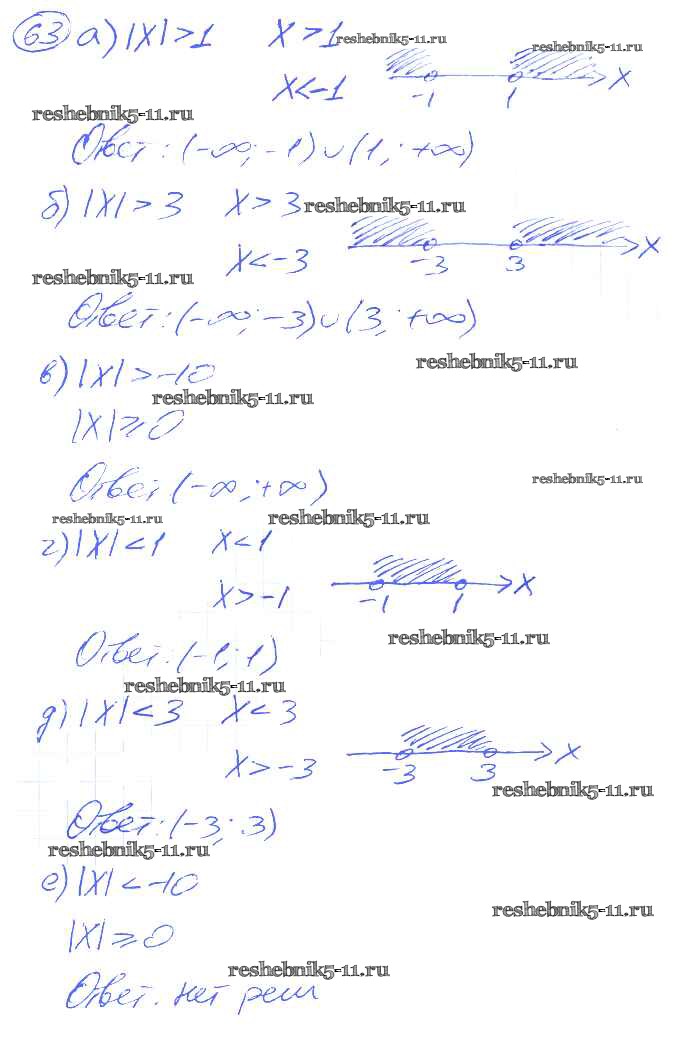 63 а) |x|>1 x>1 reshebnik5-11.ru reshebnik5-11.ru
x<-1 -1 1 x
reshebnik5-11.ru
Ответ: (-∞; -1)∪(1; +∞)
б) |x|>3 x>3 reshebnik5-11.ru
x<-3 -3 3 x
reshebnik5-11.ru
Ответ: (-∞; -3)∪(3; +∞)
reshebnik5-11.ru
в) |x|>-10
reshebnik5-11.ru
|x|⩾0
reshebnik5-11.ru
Ответ (-∞; +∞)
reshebnik5-11.ru reshebnik5-11.ru
г) |x|<1 x<1
x>-1 -1 1 x
reshebnik5-11.ru
Ответ: (-1; 1)
reshebnik5-11.ru
д) |x|<3 x<3
x>-3 -3 3 x
reshebnik5-11.ru
Ответ: (-3; 3)
reshebnik5-11.ru
е) |x|<-10
reshebnik5-11.ru
|x|⩾0
reshebnik5-11.ru
Ответ. нет реш